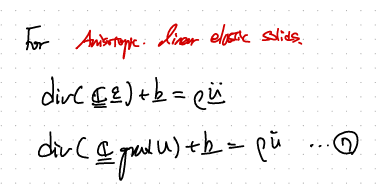 For Anisotropic. linear elastic solids.
div(ℂ ε) + b = ρü
div(ℂ grad u) + b = ρü ... ⑦